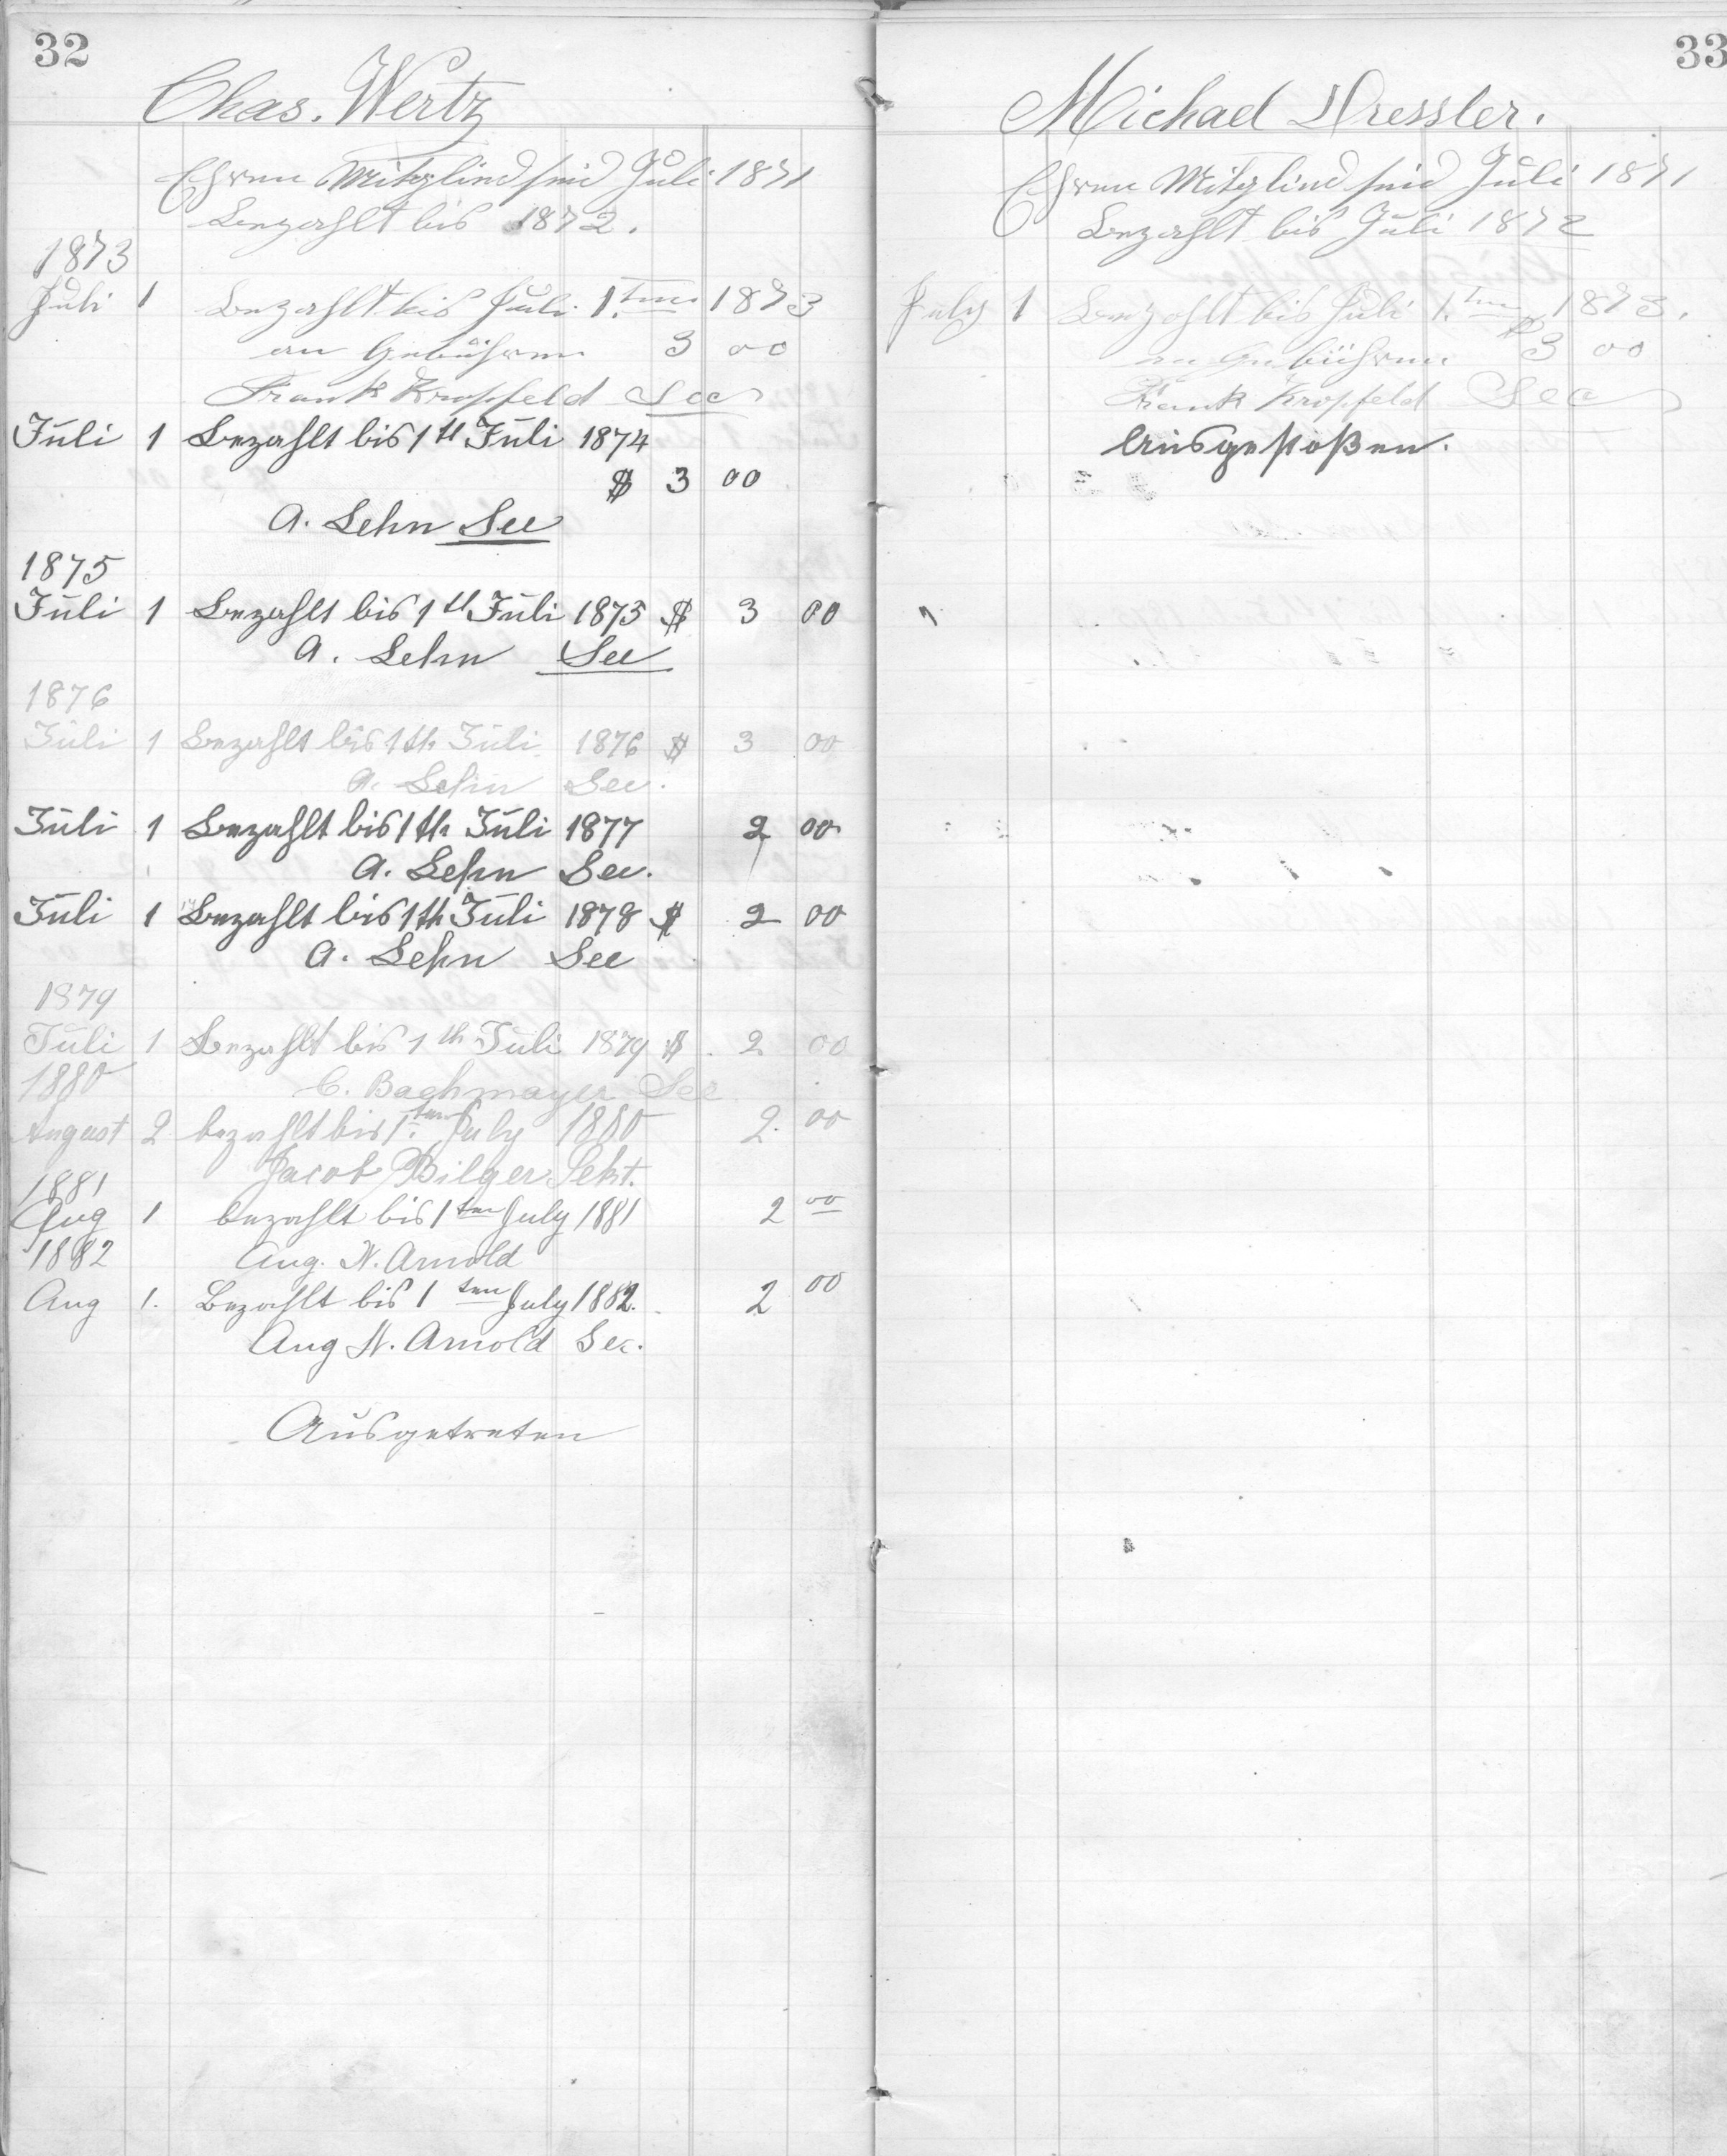 32
Chas. Wertz
Ehren Mitglied seid Juli 1871
Bezahlt bis 1872.
1873
Juli 1 Bezahlt bis Juli 1.ten 1873
an Gebühren 3 00
Frank Kropfeld Sec
Juli 1 Bezahlt bis 1th Juli 1874
$ 3 00
A. Lehn Sec
1875
Juli 1 Bezahlt bis 1th Juli 1875 $ 3 00
A. Lehn Sec
1876
Juli 1 Bezahlt bis 1th Juli 1876 $ 3 00
A. Lehn Sec.
Juli 1 Bezahlt bis 1th Juli 1877 2 00
A. Lehn Sec.
Juli 1 Bezahlt bis 1th Juli 1878 $ 2 00
A. Lehn Sec
1879
Juli 1 Bezahlt bis 1th Juli 1879 $ 2 00
1880 C. Bachmayer Sec
August 2 bezahlt bis 1.ten July 1880 2.00
Jacob Bilger Sekt.
1881
Aug 1 bezahlt bis 1ten July 1881 2 00
1882 Aug. N. Arnold
Aug 1. Bezahlt bis 1ten July 1882. 2 00
Aug N. Arnold Sec.
Ausgetreten
33
Michael Dressler.
Ehren Mitglied seid Juli 1871
Bezahlt bis Juli 1872
July 1 Bezahlt bis Juli 1.ten 1873.
an Gebühren $3 00
Frank Kropfeld Sec
Ausgestoßen.